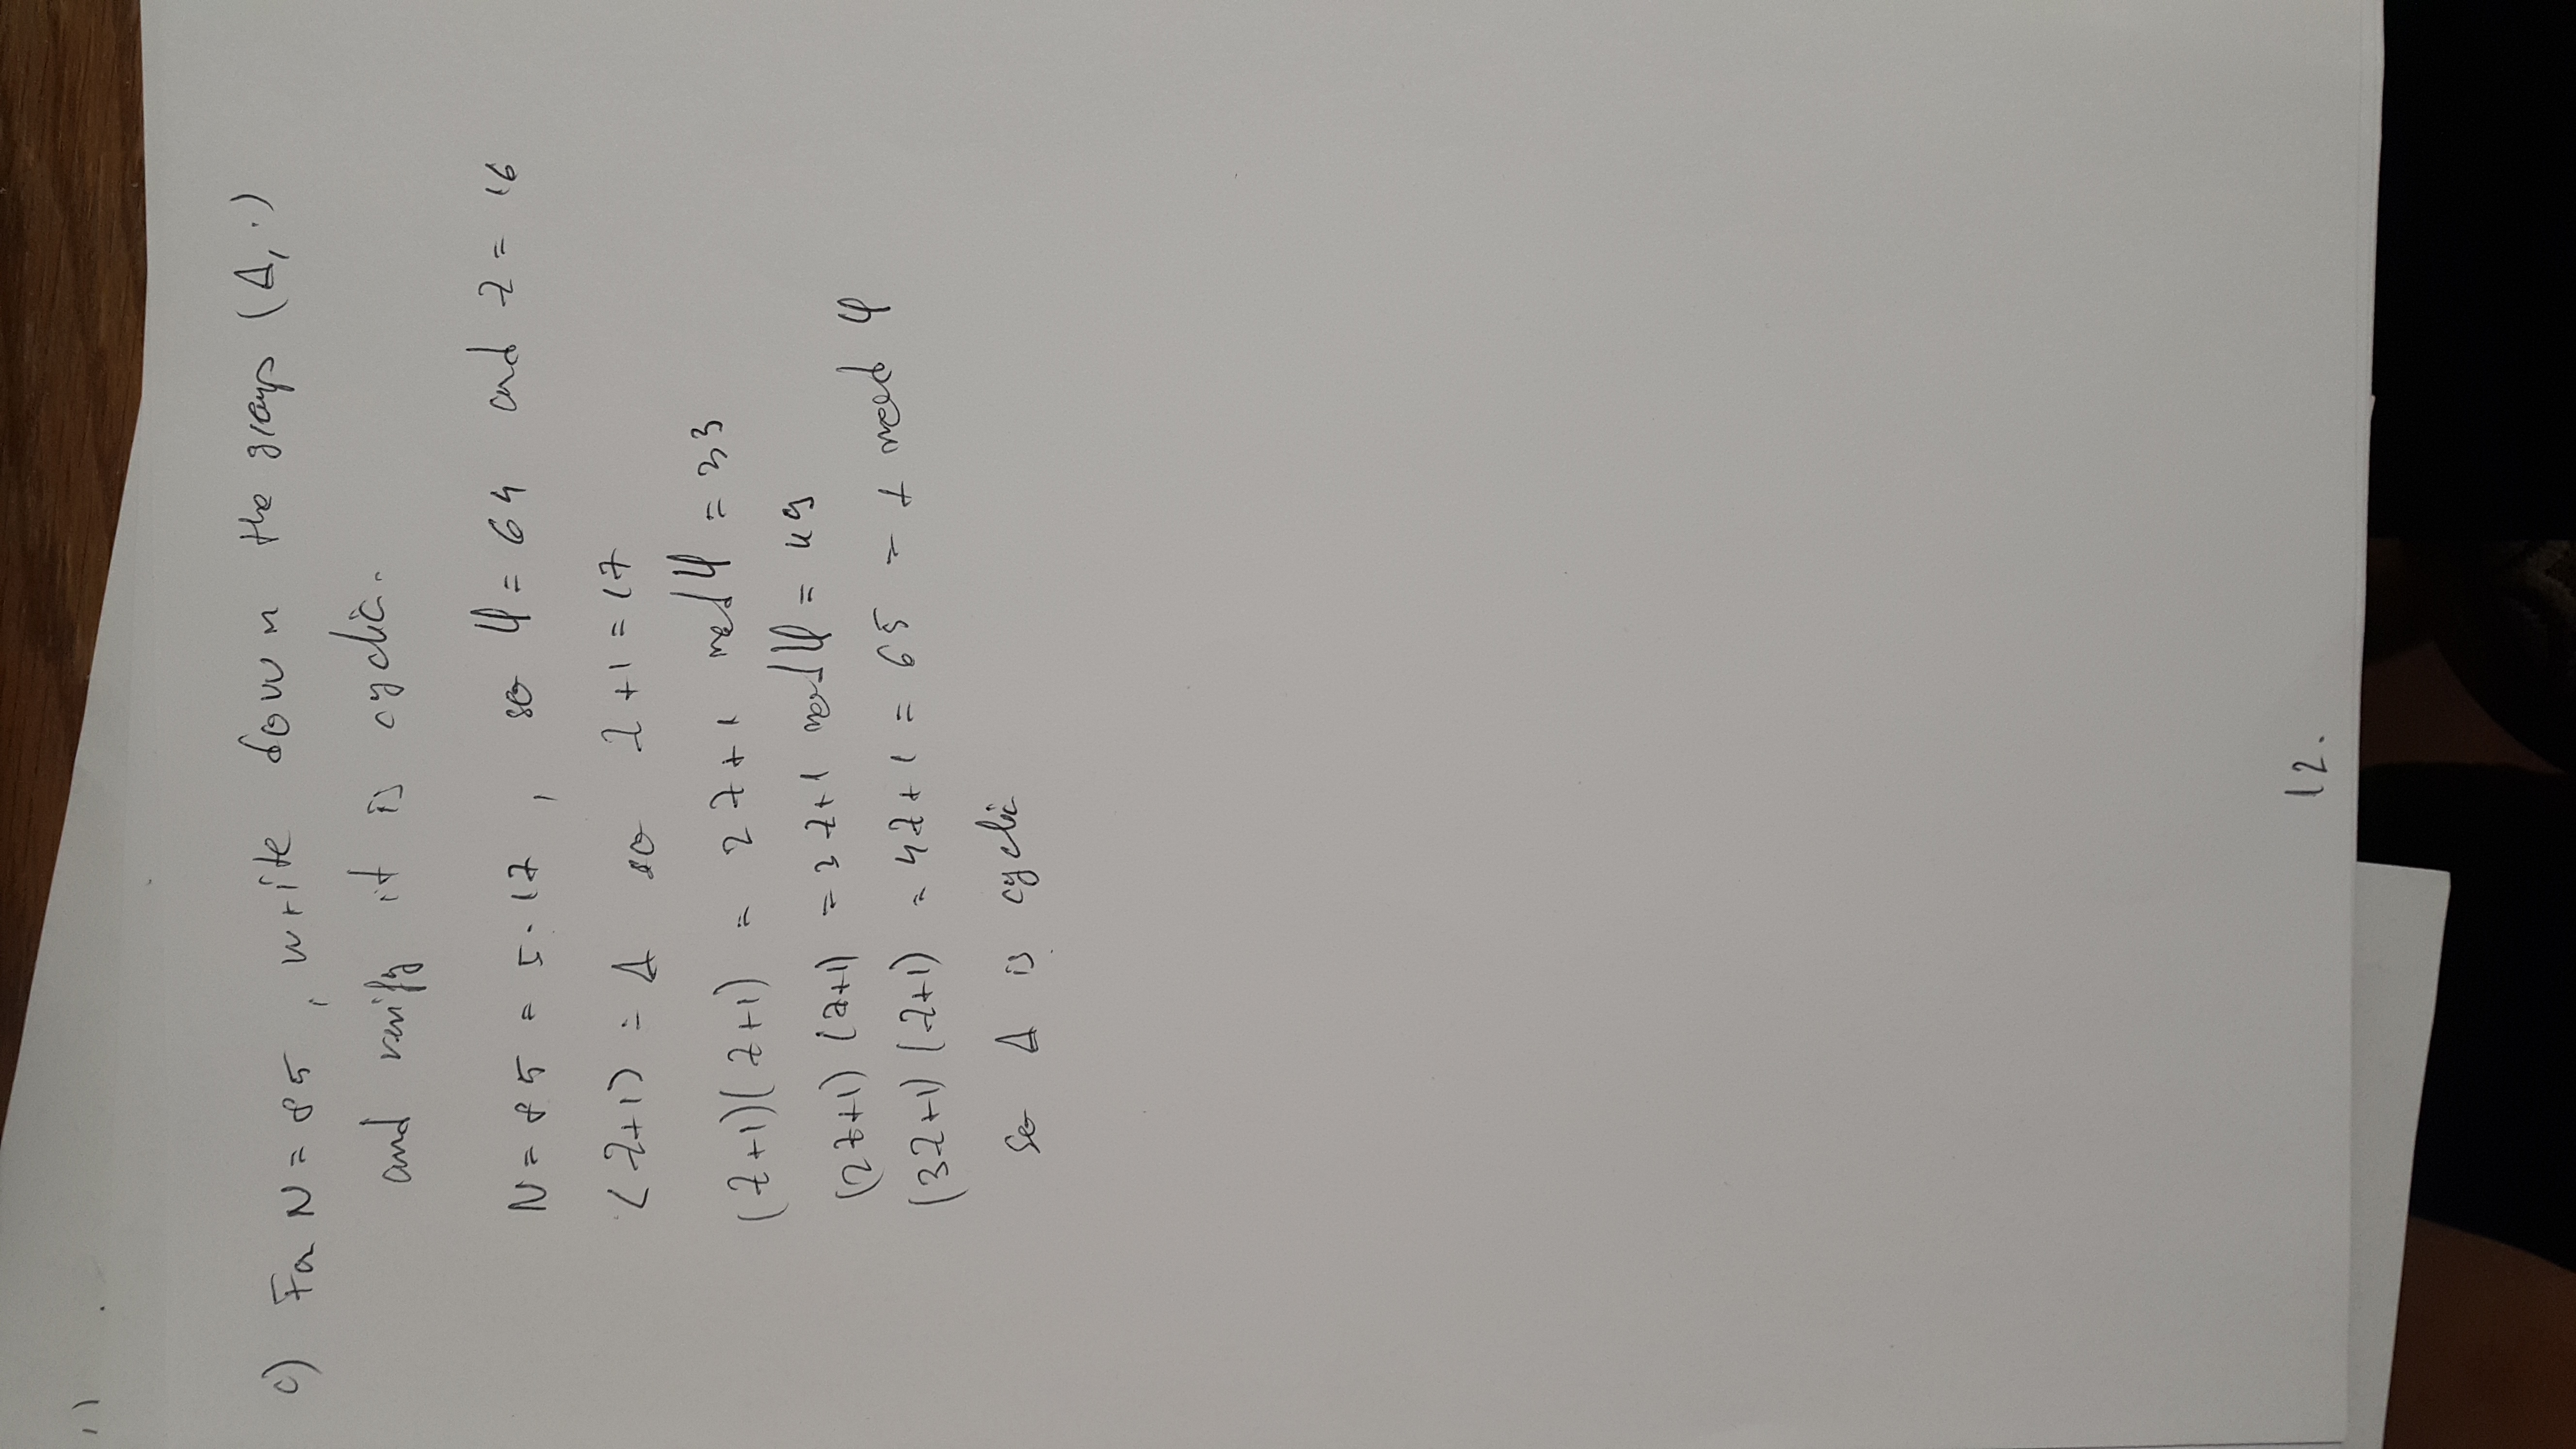 c) For N = 85, write down the groups (Δ, ·)
and verify it is cyclic.
N = 85 = 5·17, so φ = 64 and λ = 16
⟨λ+1⟩ = Δ so λ+1 = 17
(λ+1)(λ+1) = 2λ+1 mod φ = 33
(2λ+1)(λ+1) = 3λ+1 mod φ = 49
(3λ+1)(λ+1) = 4λ+1 = 65 = 1 mod φ
So Δ is cyclic
12.